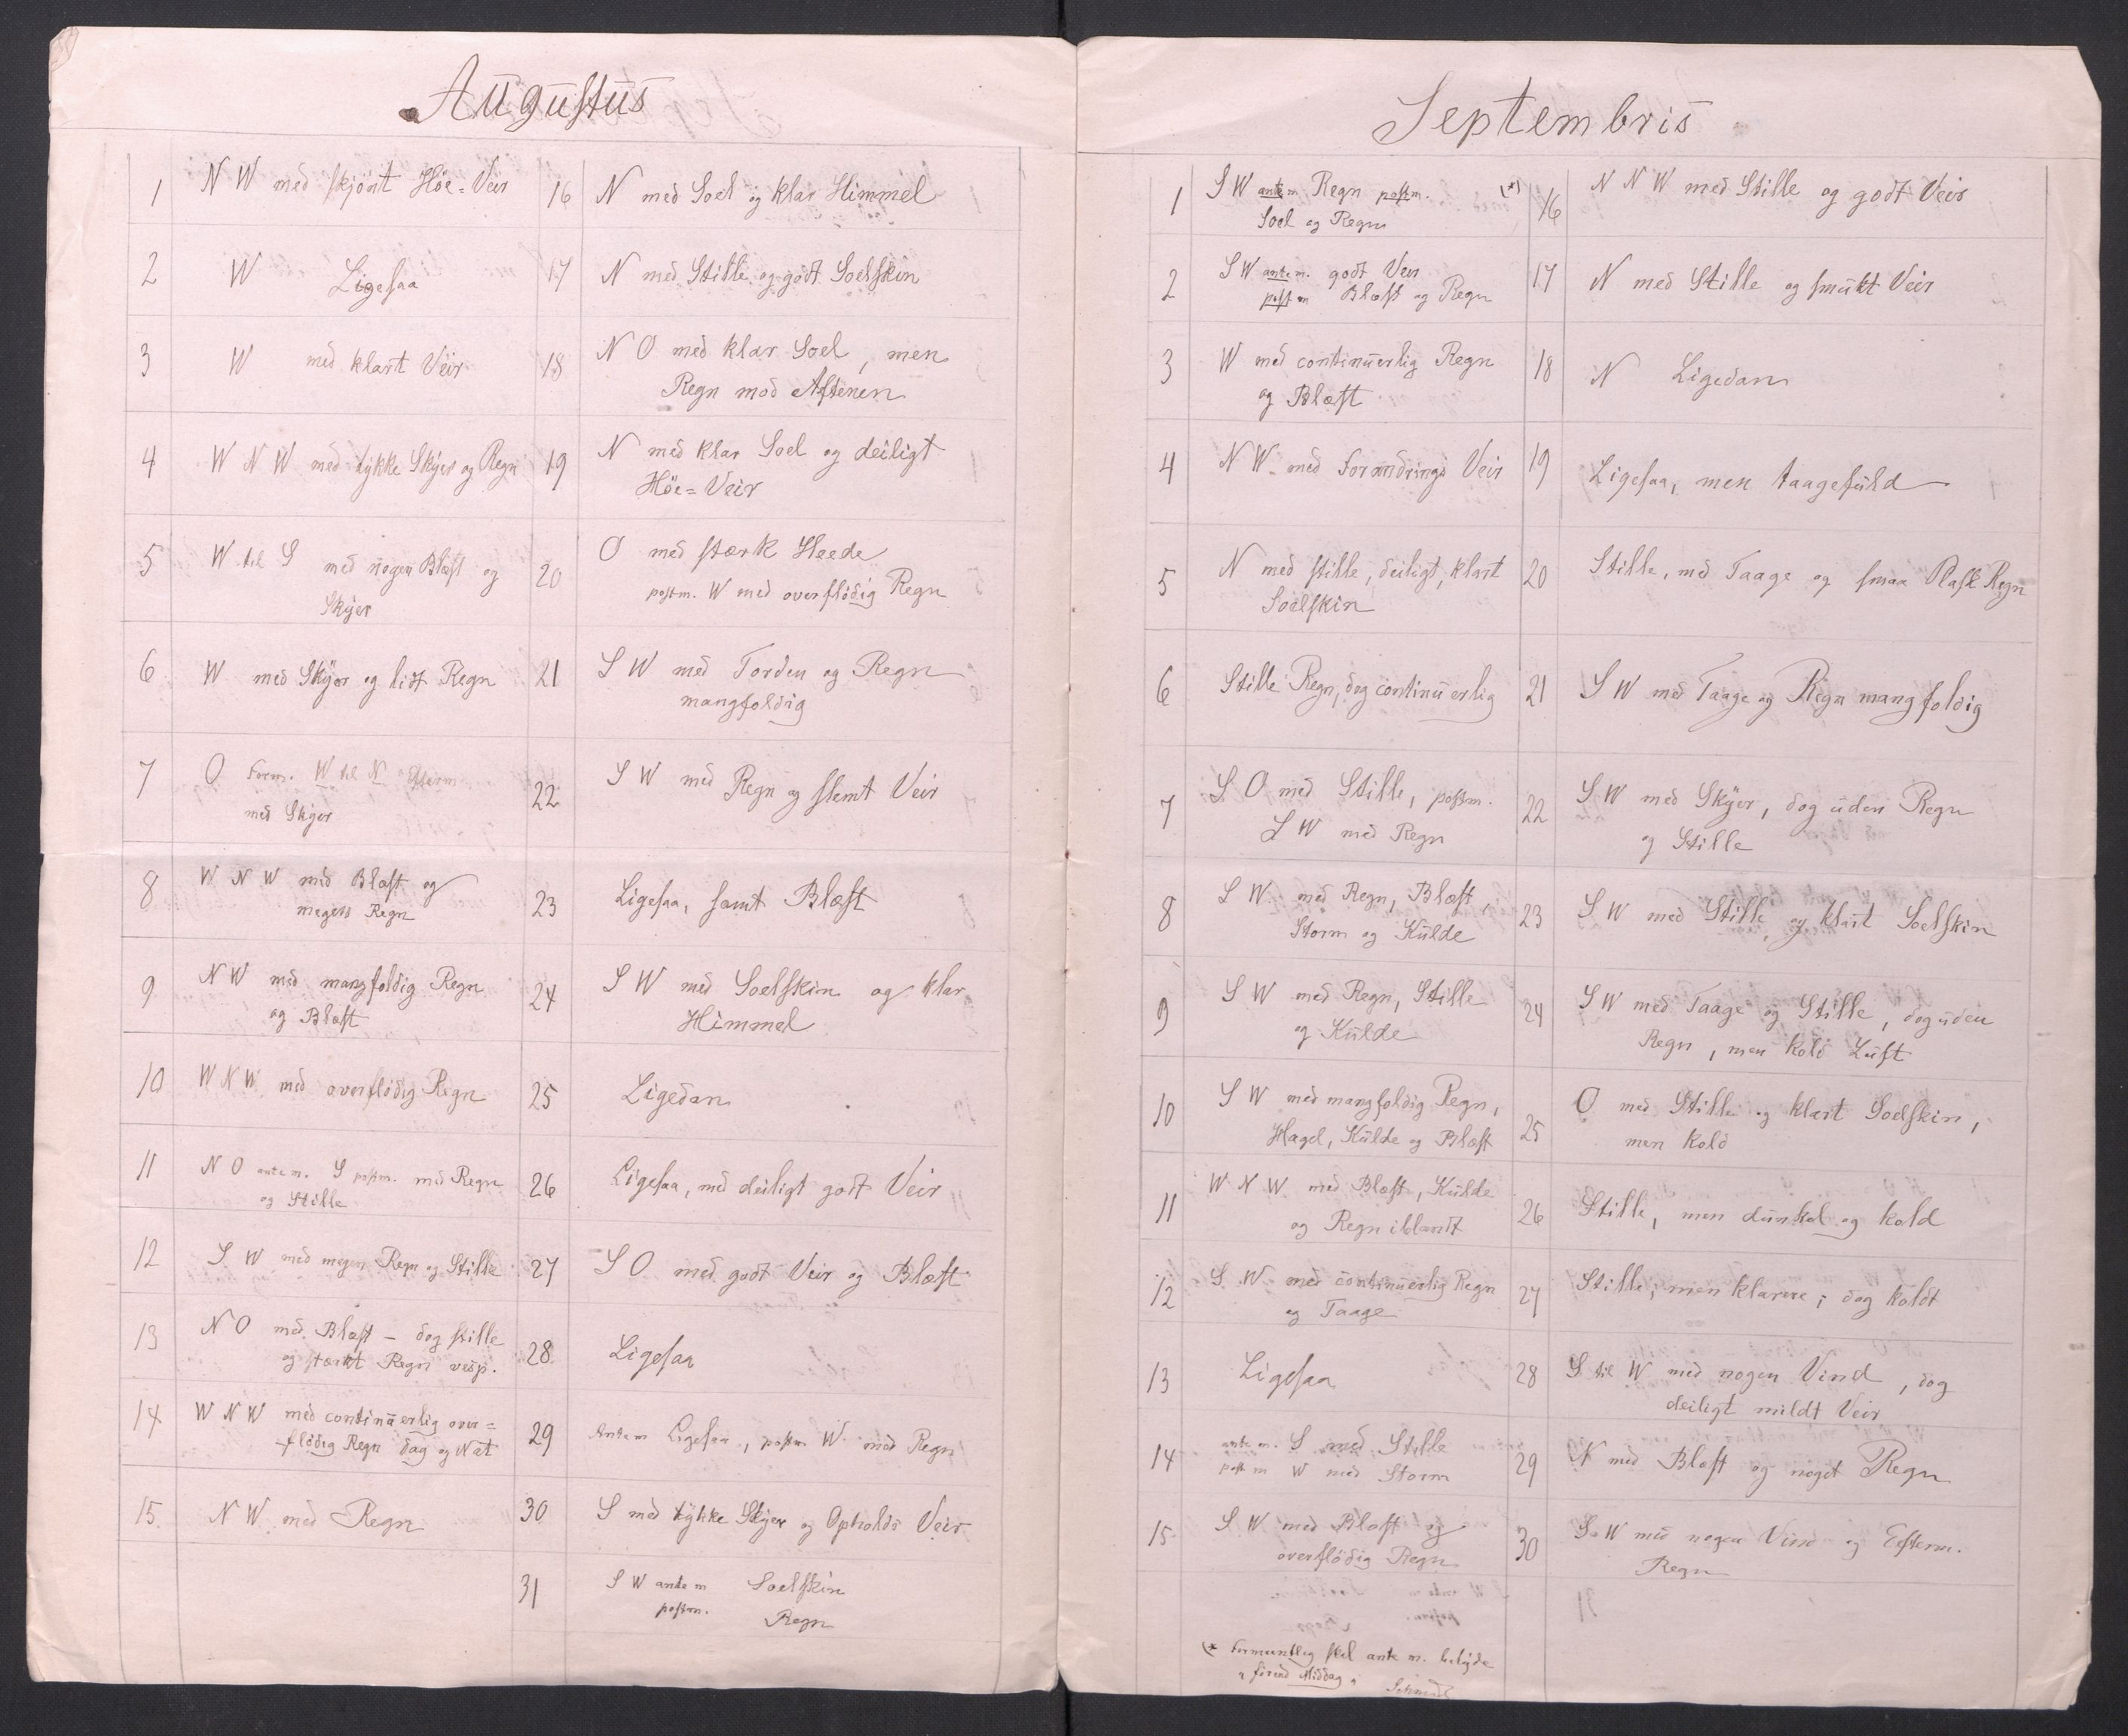 Augustus
1 N W med skjönt Höe=Veir
2 W Ligesaa
3 W med klart Veir
4 W N W med tykke Skyer og Regn
5 W til S med nogen Blæst og
Skyer
6 W med Skyer og lidt Regn
7 O Form. W til N Efterm
med Skyer
8 W N W med Blæst og
megen Regn
9 N W med mangfoldig Regn
og Blæst
10 W N W med overflödig Regn
11 N O ante m. S postm. med Regn
og Stille
12 S W med megen Regn og Stille
13 N O med Blæst – dog stille
og stærkt Regn vesp.
14 W N W med continuerlig over=
flödig Regn dag og Nat
15 N W med Regn
16 N med Soel og klar Himmel
17 N med Stille og godt Soelskin
18 N O med klar Soel, men
Regn mod Aftenen
19 N med klar Soel og deiligt
Höe=Veir
20 O med stærk Heede
postm. W med overflödig Regn
21 S W med Torden og Regn
mangfoldig
22 S W med Regn og slemt Veir
23 Ligesaa, samt Blæst
24 S W med Soelskin og klar
Himmel
25 Ligedan
26 Ligesaa, med deiligt godt Veir
27 S O med godt Veir og Blæst
28 Ligesaa
29 Ante m Ligesaa, postm W med Regn
30 S med tykke Skyer og Opholds Veir
31 S W ante m Soelskin
postm. Regn
Septembris
1 S W ante m Regn postm. (*)
Soel og Regn
2 S W ante m. godt Veir
post m Blæst og Regn
3 W med continuerlig Regn
og Blæst
4 N W med Forandrings Veir
5 N med stille, deiligt, klart
Soelskin
6 Stille Regn, dog continuerlig
7 S O med Stille, postm.
S W med Regn
8 S W med Regn, Blæst,
Storm og Kulde
9 S W med Regn, Stille
og Kulde
10 S W med mangfoldig Regn,
Hagel, Kulde og Blæst
11 W N W med Blæst, Kulde
og Regn iblandt
12 S W med continuerlig Regn
og Taage
13 Ligesaa
14 ante m. S med Stille
post m W med Storm
15 S W med Blæst og
overflödig Regn
16 N N W med Stille og godt Veir
17 N med Stille og smukt Veir
18 N Ligedan
19 Ligesaa, men taagefuld
20 Stille, med Taage og smaa Regn
21 S W med Taage og Regn mangfoldig
22 S W med Skyer, dog uden Regn
og Stille
23 S W med Stille og klart Soelskin
24 S W med Taage og Stille, dog uden
Regn, men kold Luft
25 O med Stille og klart Soelskin,
men kold
26 Stille, men dunkel og kold
27 Stille, men klarere; dog koldt
28 S til W med nogen Vind, dog
deiligt mildt Veir
29 N med Blæst og noget Regn
30 S W med nogen Vind og Efterm.
Regn
(* formentlig skal ante m. betyde
"förend Middag"